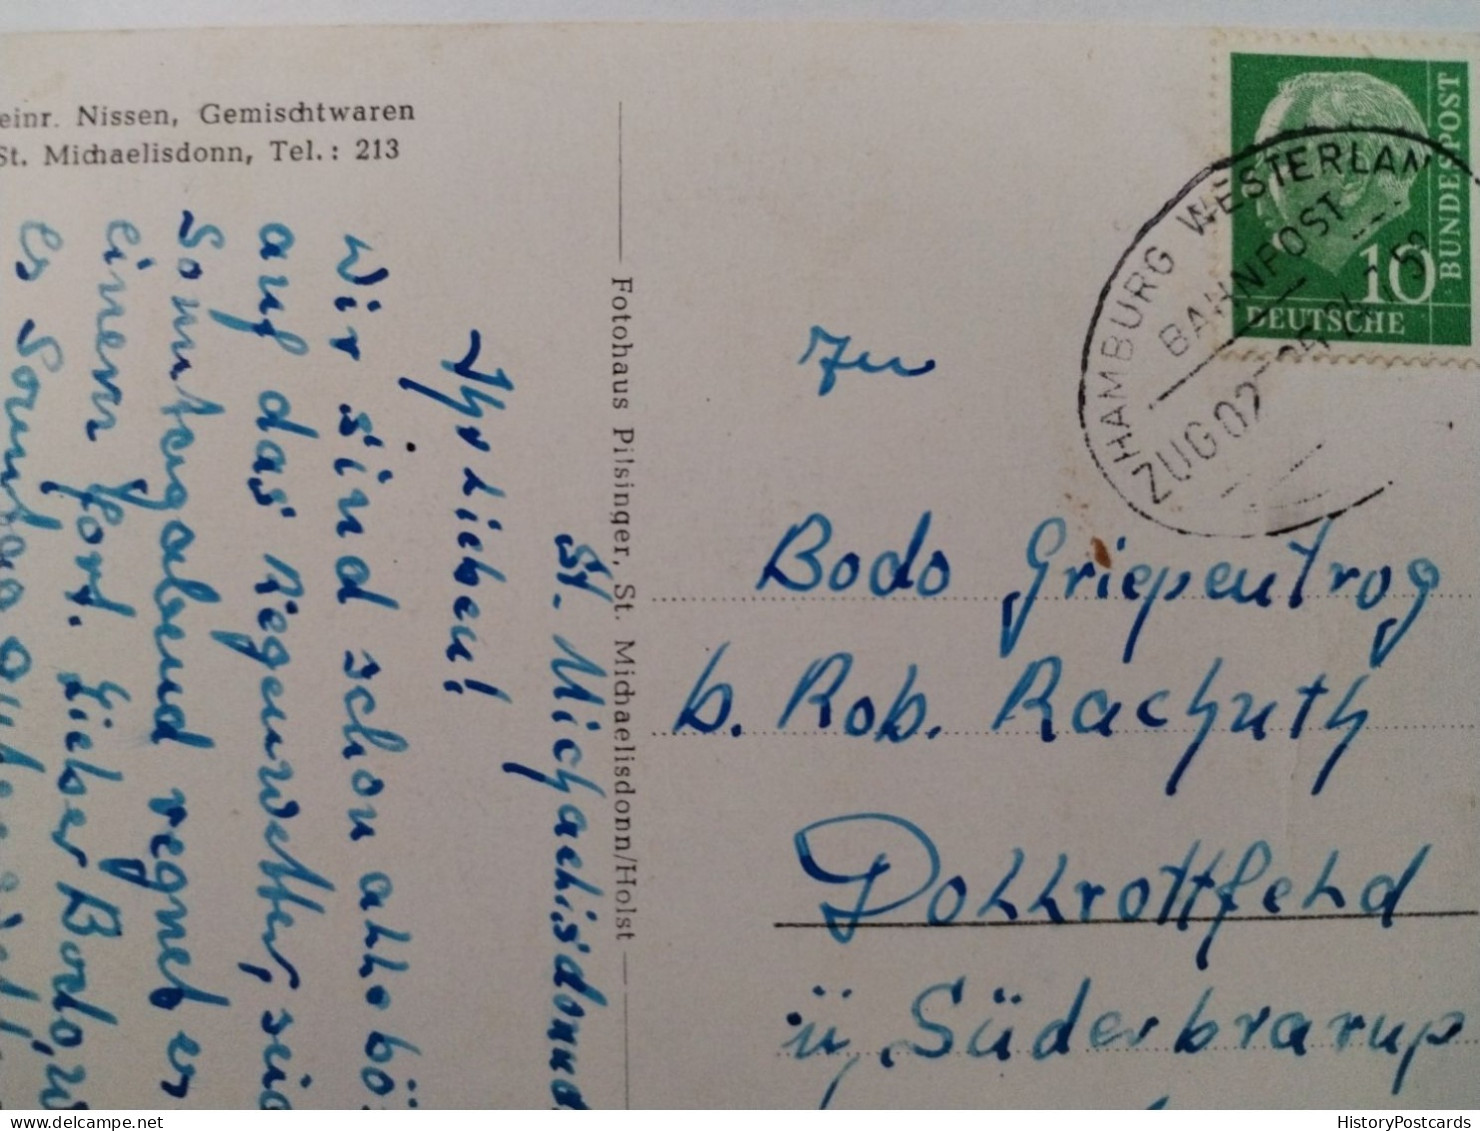 einr. Nissen, Gemischtwaren
St. Michaelisdonn, Tel.: 213
St. Michaelisdonn
Ihr Lieben!
Wir sind schon alle bö
auf das Regenwetter, seid
Sonntagabend regnet er
einem fort. Lieber Bodo, w
Fotohaus Pilsinger, St. Michaelisdonn/Holst
DEUTSCHE
BUNDESPOST
10
HAMBURG WESTERLAN
BAHNPOST
ZUG 02
An
Bodo Griepentrog
b. Rob. Rachuth
Dollrottfeld
ü. Süderbrarup
HistoryPostcards - delcampe.net